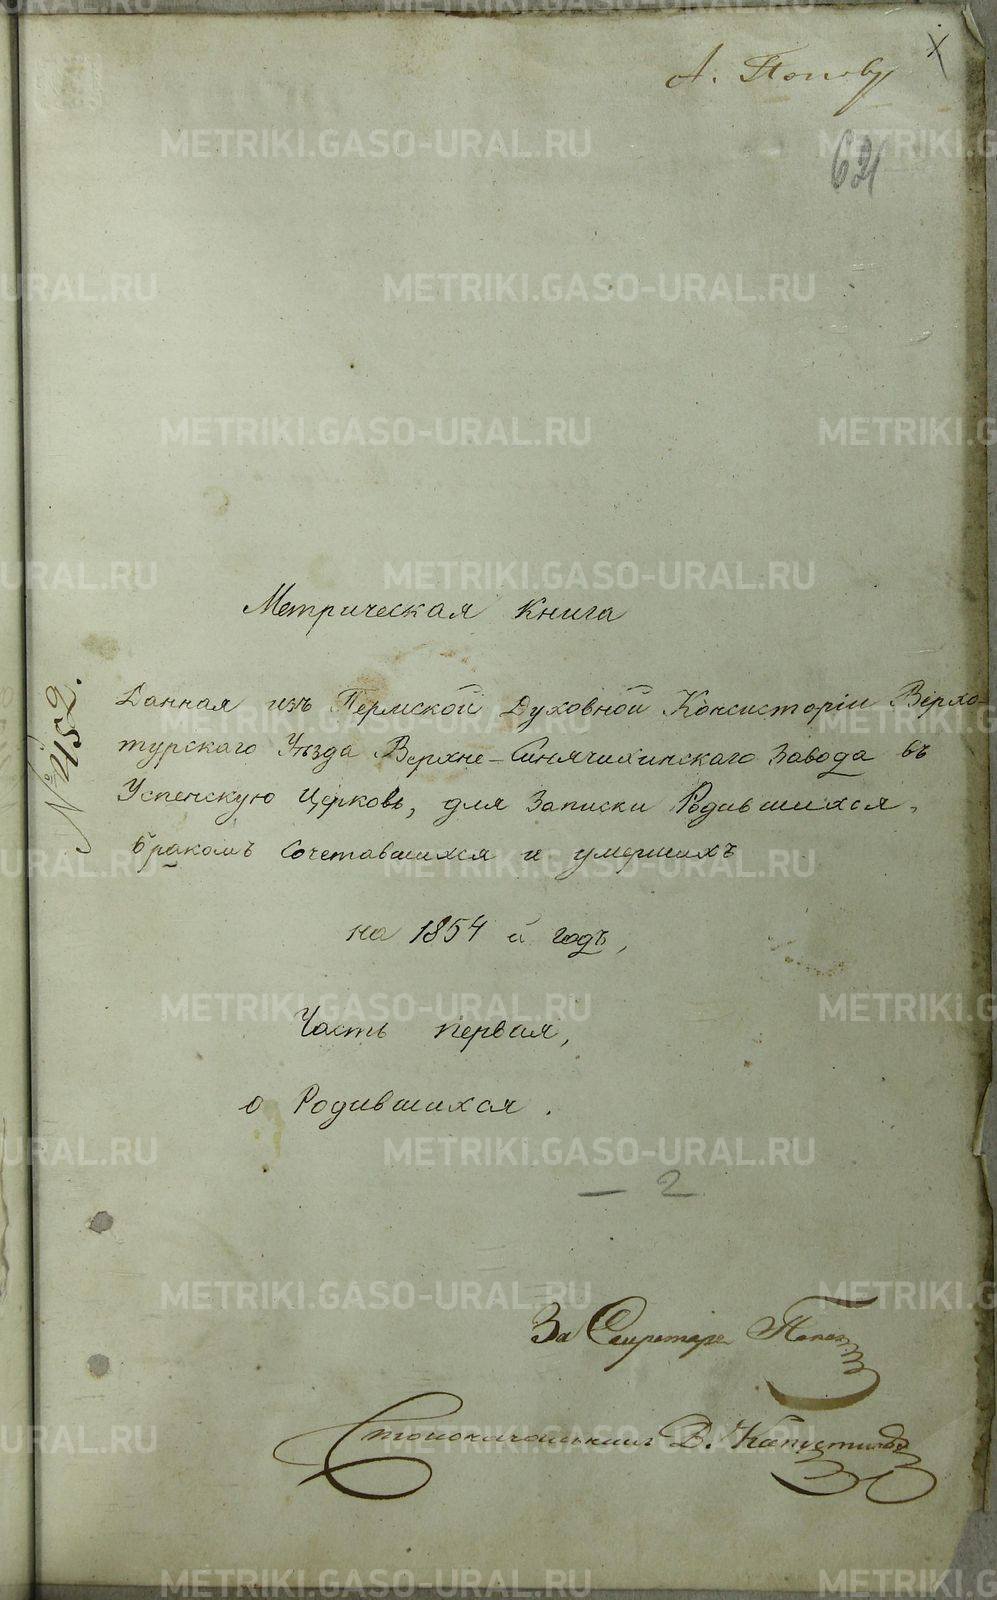 А. Попов
62
№ 452.
Метрическая Книга
Данная изъ Пермской Духовной Консисторіи Верхо-
турскаго Уѣзда Верхне-Синячихинскаго Завода въ
Успенскую Церковь, для Записки Родившихся,
бракомъ Сочетавшихся и умершихъ
на 1854 й годъ,
Часть первая,
о Родившихся.
— 2
За Секретаря Попов
Столоначальникъ В. Капустинъ
METRIKI.GASO-URAL.RU